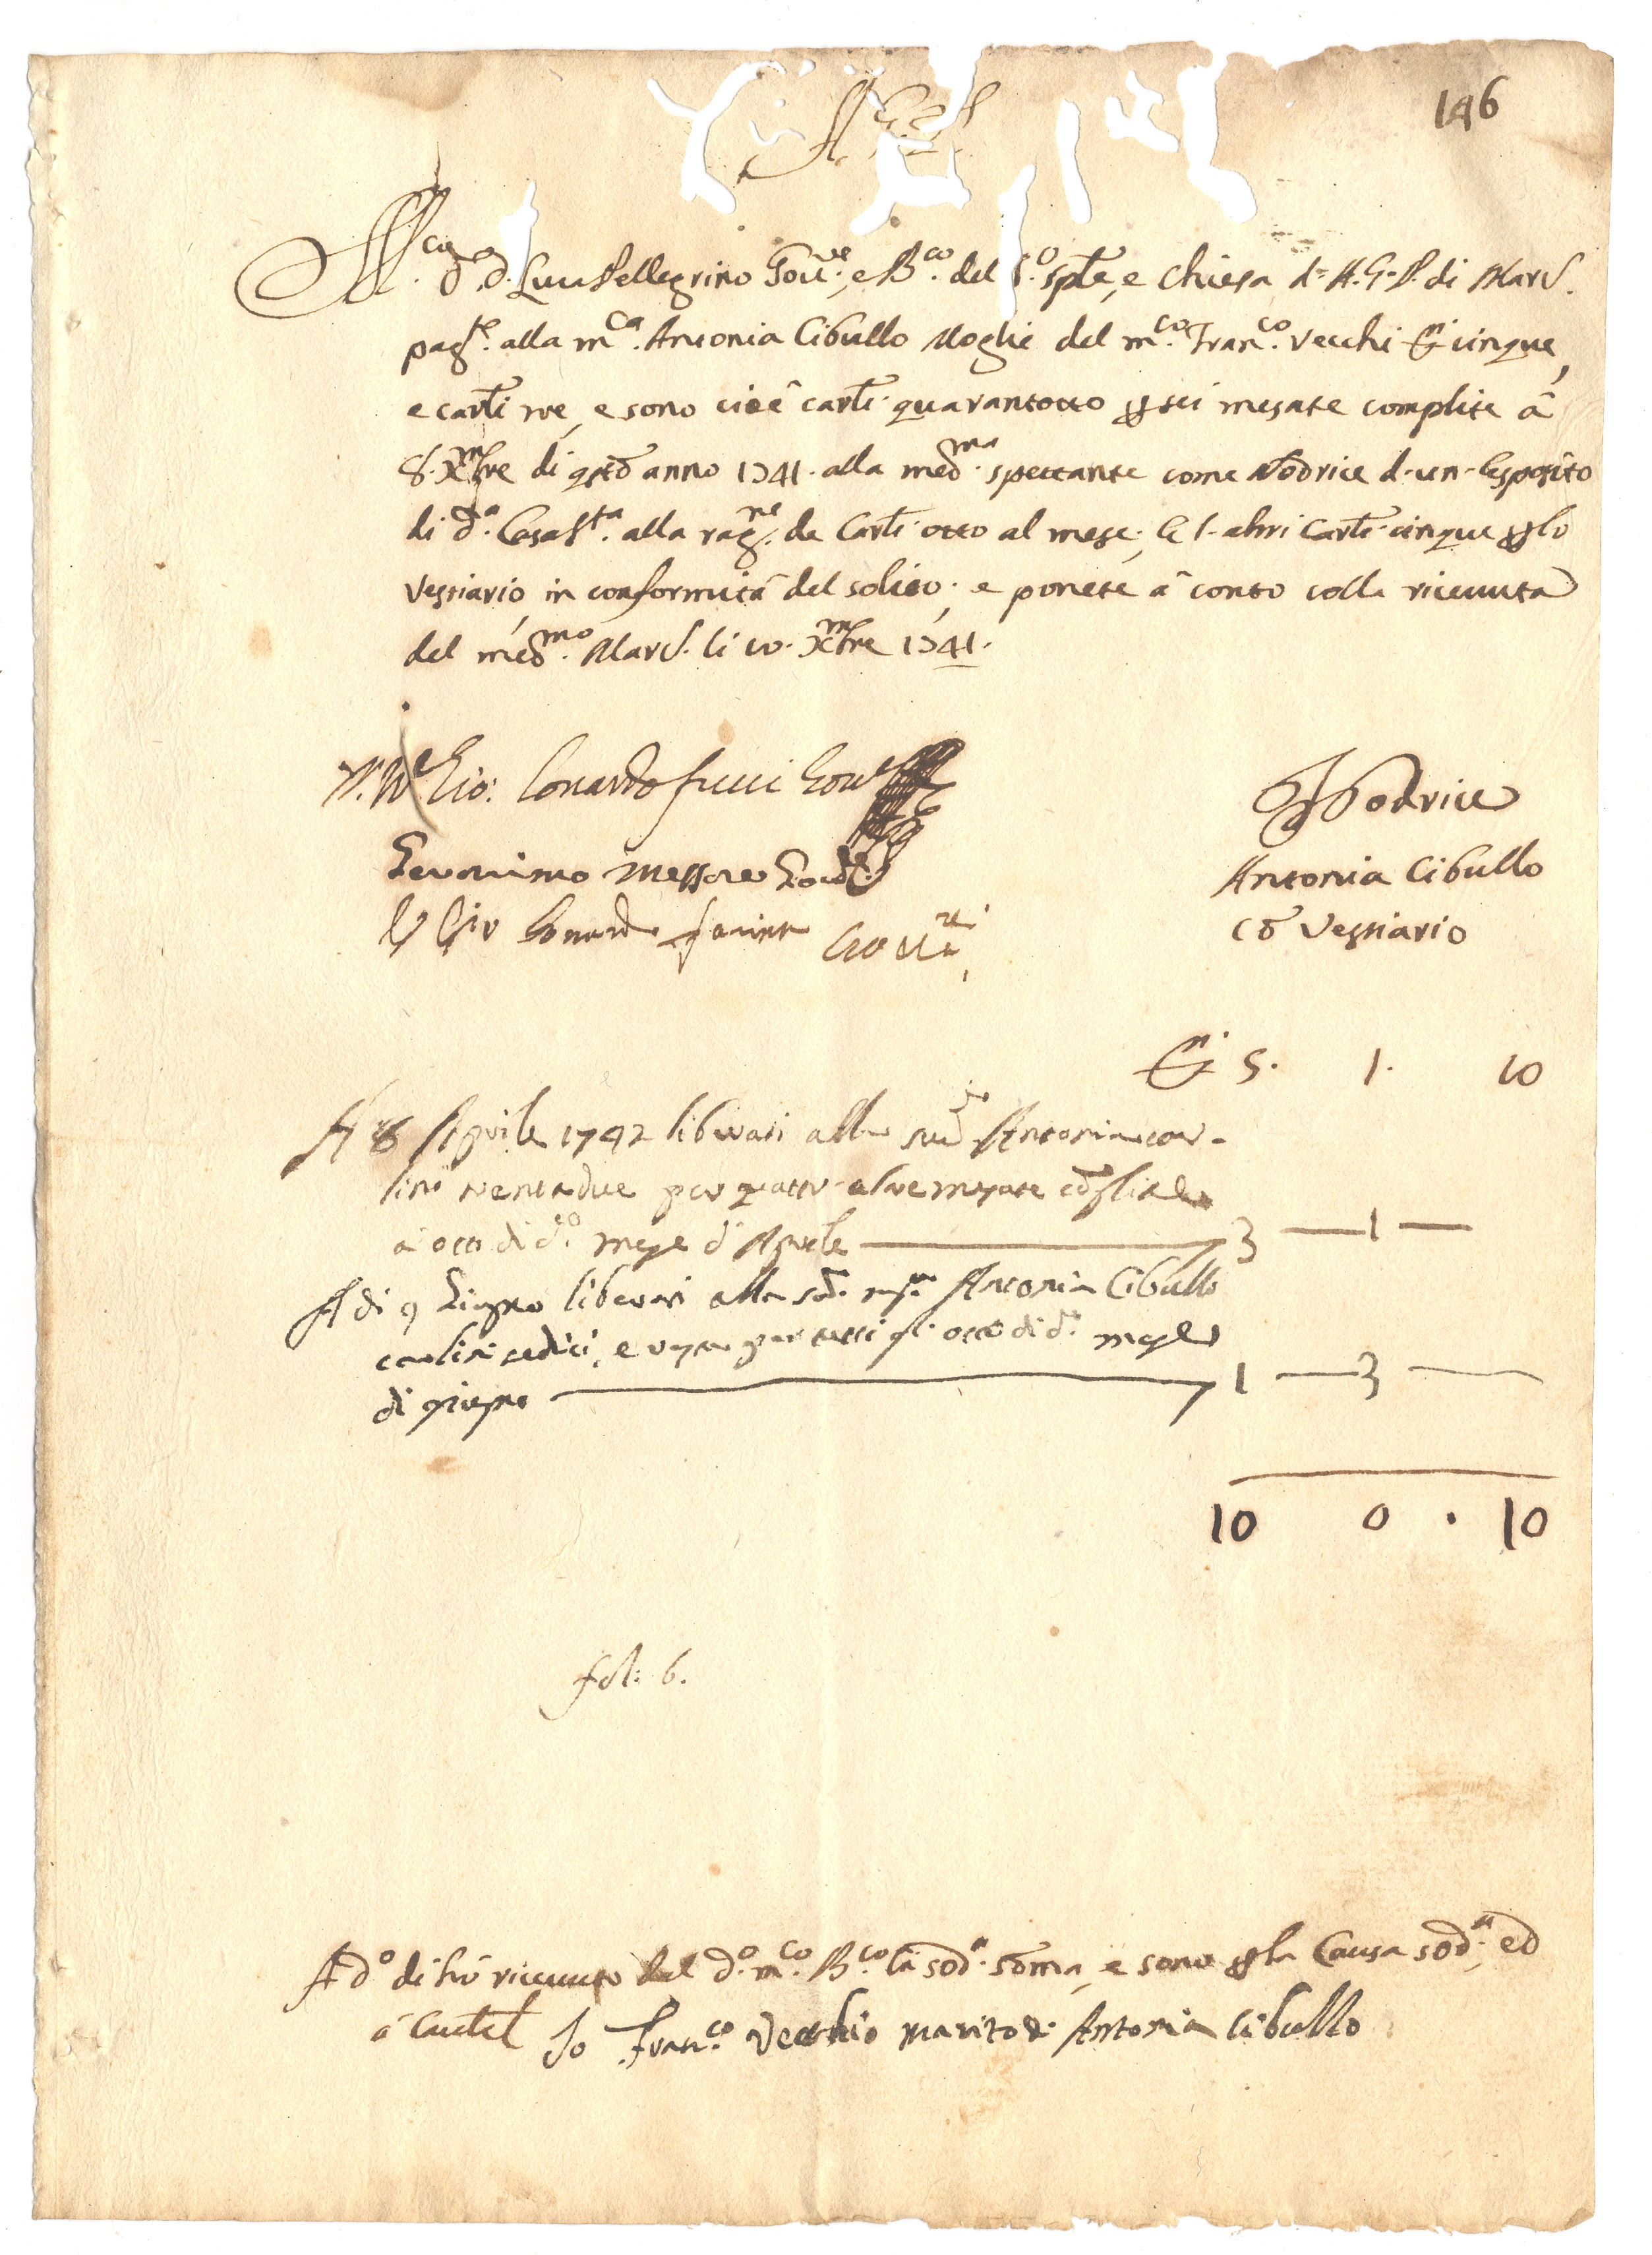 146
M.co D. D. Luca Pellegrino Gov.re, e B.co del S.o Spte, e Chiesa d= A. G. P. di Mard.
pag.te alla m.ca Antonia Cibullo Moglie del m.co Fran.co Vecchi D.ni cinque,
e carli tre, e sono cioè carli quarantotto p sei mesate complite à
8. Xmbre di qsto anno 1741. alla med.ma spettante come Nodrice d-un-Esposito
di d.a Casa S.ta alla rag.ne de Carli otto al mese; E l-altri Carli cinque p lo
Vestiario, in conformità del solito; e ponete à conto colla ricevuta
del med.mo Mard. li 10. Xmbre 1741.
Gio: Lonardo fucci Gov.re
Geronimo Messore Gov.re
Gio Lonardo farina Gov.re
Nodrice
Antonia Cibullo
Co Vestiario
D.ni 5. 1. 10
A 8 Aprile 1742 liberati alla sud.a Antonia car-
lini trentadue per quattro altre mesate coplite
a otto di d.o mese d'Aprile 3 — 1 —
A di 9 Giugno liberati alla sd.a m.ca Antonia Cibullo
carlini sedici, e per tutti gl'otto di d.o mese
di giugno 1 — 3 —
10 0 . 10
fol: 6.
A d.o dì hò ricevuto dal d.o m.co B.co la sod.a soma, e sono p la Causa sod.a, ed
à Cautel Io Fran.co Vecchio marito d. Antonia Cibullo